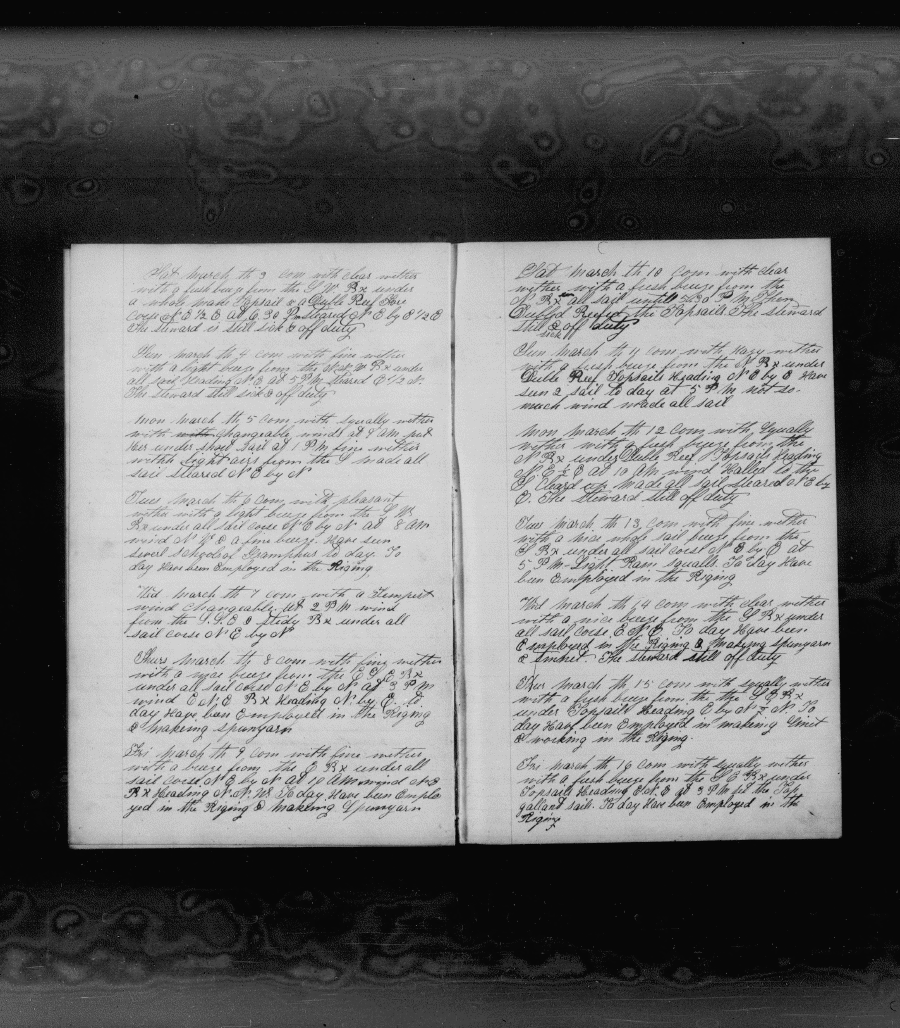 Sat March th 3 Com with clear wether
with a fresh breeze from the S W. Bx under
a whole main Topsail & a Duble Reef Fore
corse N E ½ E at 6.30 Pm steared N E by E ½ E
The steward is still sick & off duty
Sun march th 4 com with fine wether
with a light breeze from the W.S.W Bx under
all sail Heading N E at 5 P M steared E ½ N.
The steward still sick & off duty
Mon march th 5 com with squally wether
with with changeable winds at 9 AM put
her under short sail at 1 P M fine wether
with light airs from the S made all
sail steared N E by N
Tues march th 6 com with pleasant
wether with a light breeze from the S W.
Bx under all sail corse N E by N at 8 AM
wind N W & a fine breeze. Have seen
severl school of Gramphus to day. To
day Have been Employed in the Riging
Wed march th 7 com with a Tempest
wind changeable. At 2 P M wind
from the S.S.E & stedy Bx under all
sail corse N E by N
Thurs march th 8 com with fine wether
with a nice breeze from the E S E Bx
under all sail corse N E by N at 3 P m
wind E N E Bx Heading N by E To
day Have ben Employed in the Riging
& making spunyarn
Fri march th 9 com with fine wether
with a breeze from the E Bx under all
sail corse N E by N at 10 A M wind N E
Bx Heading N. N. W. To day Have been Emplo
yed in the Riging & making Spunyarn
Sat march th 10 Com with clear
wether with a fresh breeze from the
N Bx all sail untill P M Then
Dubled Reefed the Topsails The steward
still & off duty
sick
Sun march th 11 com with Hazy wether
with a fresh breeze from the N Bx under
Duble Reef Topsails Heading N E by E Have
seen a sail to day at 5 P M not so
much wind made all sail
Mon march th 12 Com with Squally
wether with a fresh breeze from the
N Bx under Duble Reef Topsails Heading
N E ½ E at 10 AM wind Halled to the
S cleard up made all sail steared N E by
E. The Steward still off duty
Tues march th 13 Com with fine wether
with a nice sail breeze from the
S Bx under all sail corse N E by E at
5 P M Light Rain squalls To day Have
ben Employed in the Riging
Wed march th 14 com with clear wether
with a nice breeze from the S Bx under
all sail corse E N E. To day Have been
Employed in the Riging & Making spunyarn
& sinket. The steward still off duty
Thur march th 15 com with squally wether
with a fresh breeze from the the S E Bx
under Topsails Heading E by N ½ N To
day Have ben Employed in making Sinit
& working in the Riging.
Fri march th 16 com with squally wether
with a fresh breeze from the S E Bx under
Topsails Heading E N. E at 3 P M set the Top
gallant sails. To day Have been Employed in the
Riging